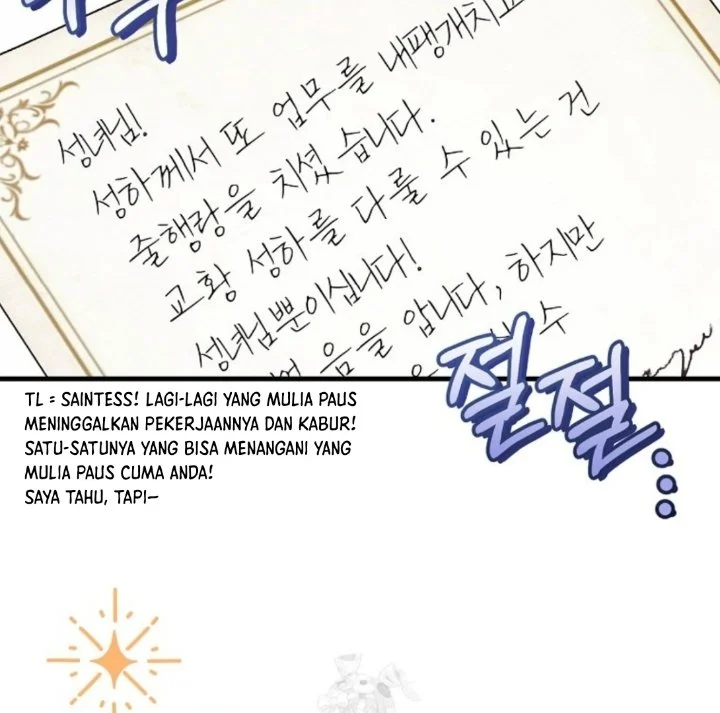 성녀님!
성하께서 또 업무를 내팽개치고
줄행랑을 치셨습니다.
교황 성하를 다룰 수 있는 건
성녀님뿐이십니다!
음을 압니다, 하지만
수
절절...
TL = SAINTESS! LAGI-LAGI YANG MULIA PAUS
MENINGGALKAN PEKERJAANNYA DAN KABUR!
SATU-SATUNYA YANG BISA MENANGANI YANG
MULIA PAUS CUMA ANDA!
SAYA TAHU, TAPI—